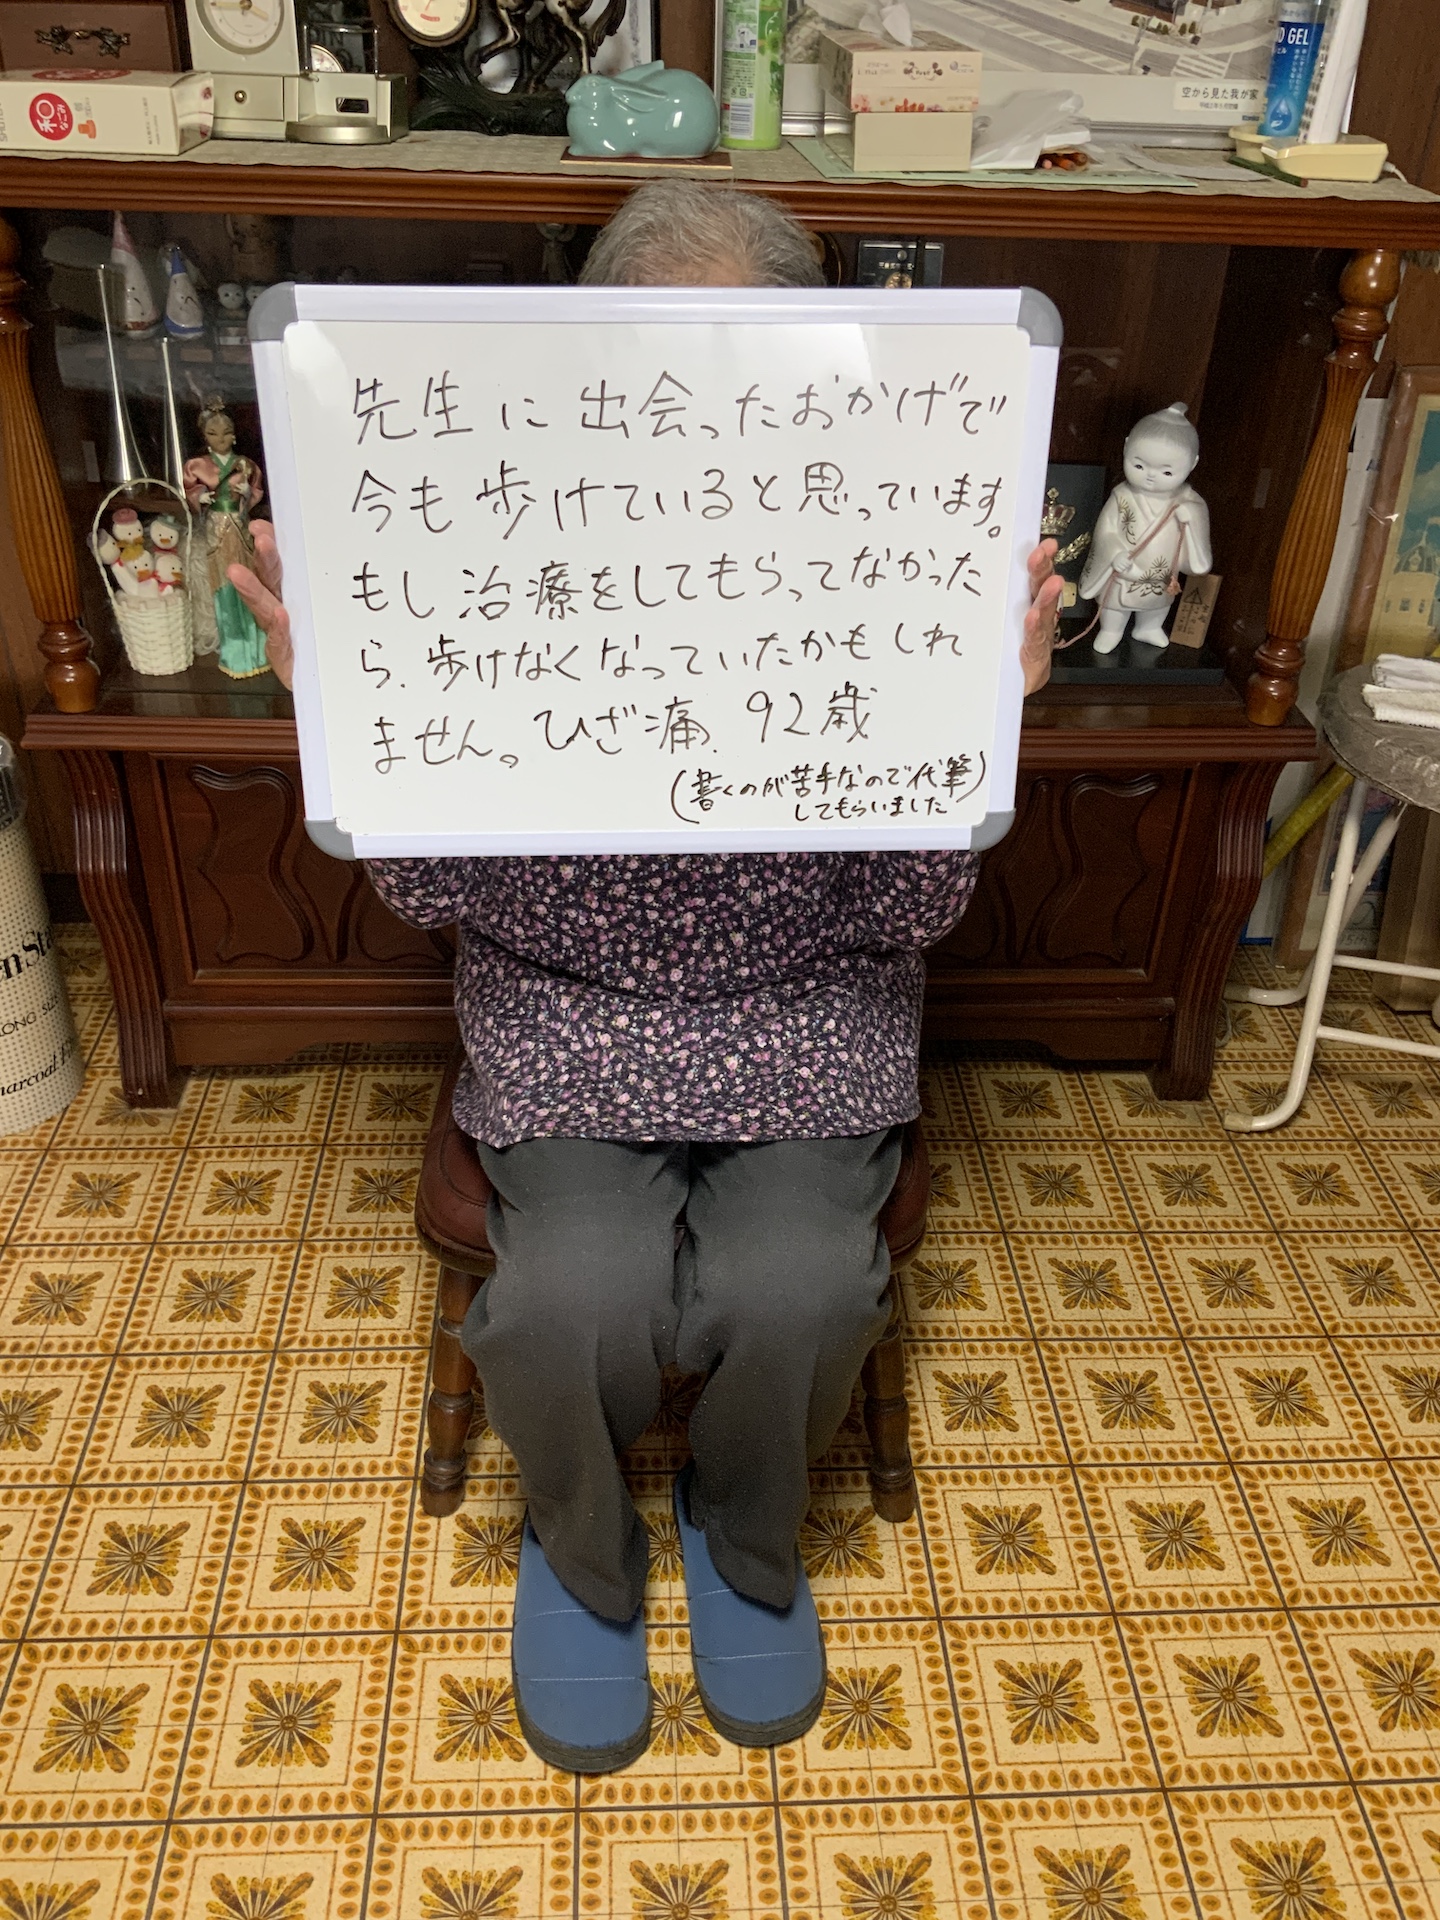 先生に出会ったおかげで
今も歩けていると思っています。
もし治療をしてもらってなかった
ら、歩けなくなっていたかもしれ
ません。ひざ痛、92歳
(書くのが苦手なので代筆)
してもらいました
空から見た我が家
GEL
和